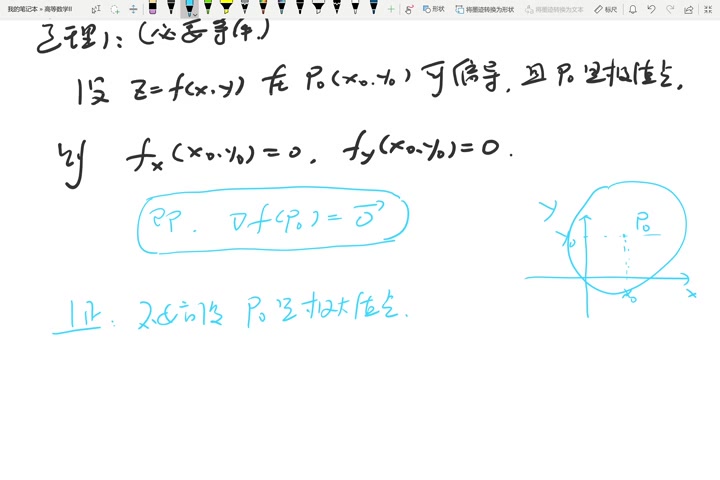 我的笔记本 » 高等数学II
将图迹转换为形状
将墨迹转换为文本
标尺
定理1:(必要条件)
设 z=f(x,y) 在 P₀(x₀,y₀) 可偏导,且 P₀ 是极值点.
则 fₓ(x₀,y₀)=0. f_y(x₀,y₀)=0.
即. ∇f(P₀)=0⃗
y
P₀
y₀
x₀ x
证: 不妨设 P₀ 是极大值点.